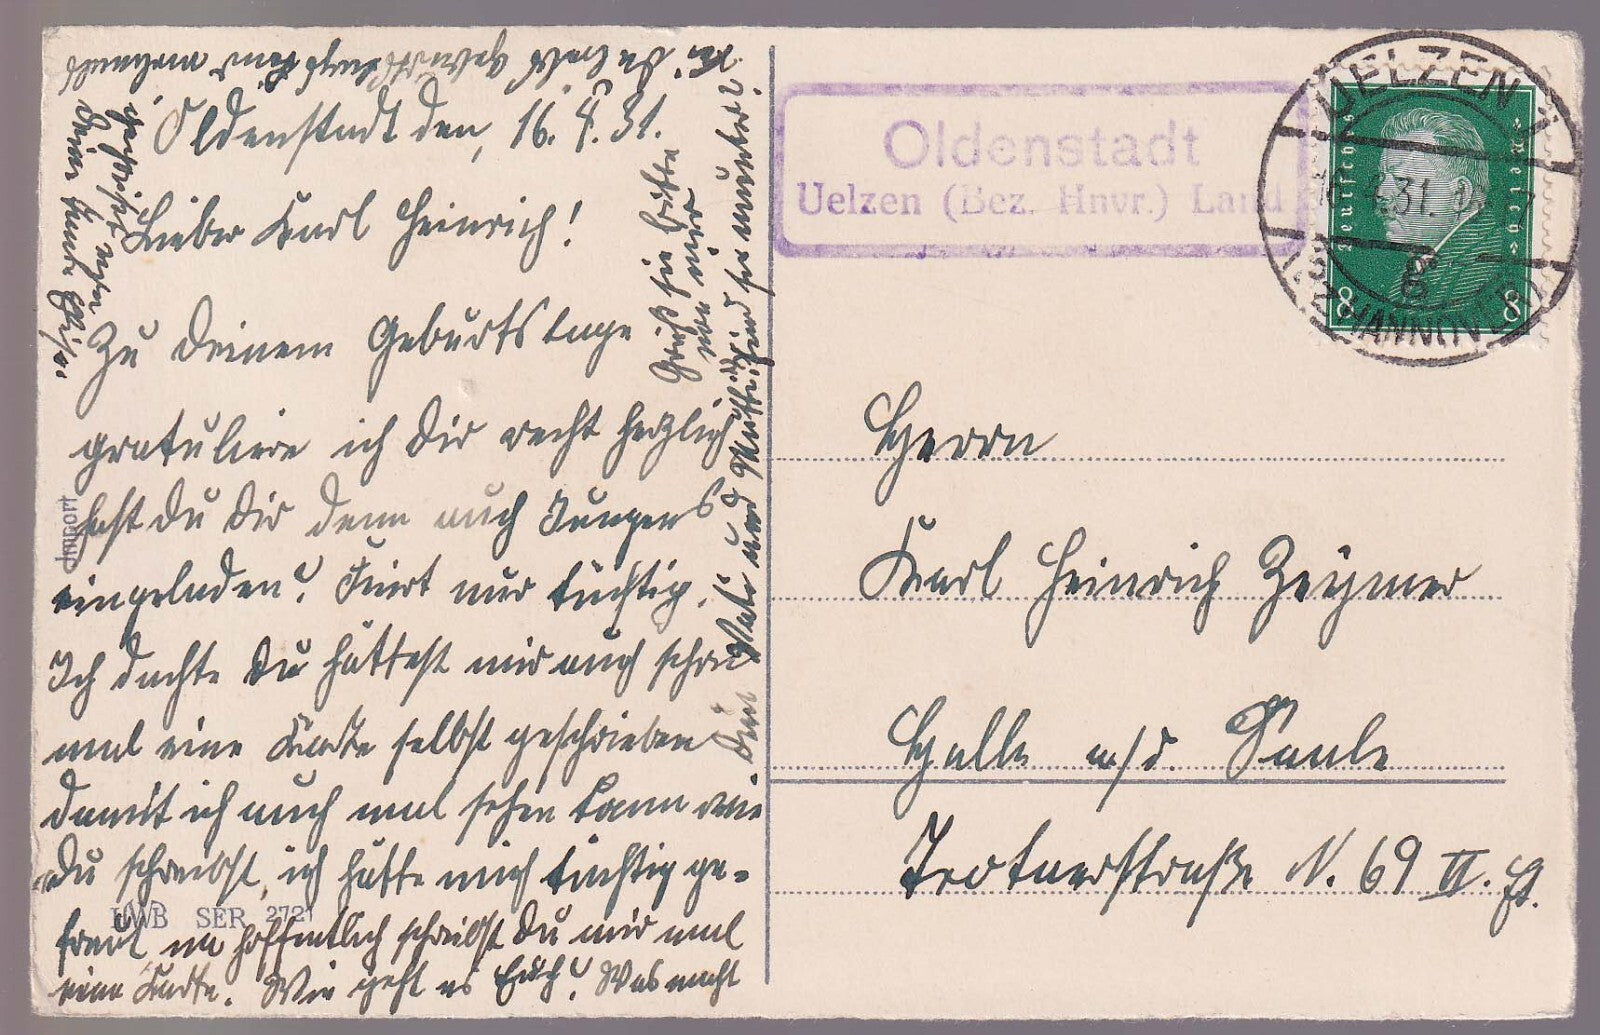 Oldenstadt den, 16.4.31.
Lieber Karl Heinrich!
Zu deinem Geburtstage
gratuliere ich dir recht herzlich
hast du dir denn auch Jungens
eingeladen? Feiert nur tüchtig.
Ich dachte du hättest mir auch schon
mal eine Karte selbst geschrieben
damit ich auch mal sehen kann wie
du schreibst, ich hätte mich tüchtig ge-
freut, na hoffentlich schreibst du mir mal
eine Karte. Wie geht es Euch? Was macht
dein Vati und Mutti, sind sie munter?
Gruß sie bitte
von mir
deine Tante
Import
HWB SER. 2721
Oldenstadt
Uelzen (Bez. Hnvr.) Land
UELZEN
16.4.31.
HANNOVER
Deutsches Reich
8 8
Herrn
Karl Heinrich
Halle a/d. Saale
N. 69 II.